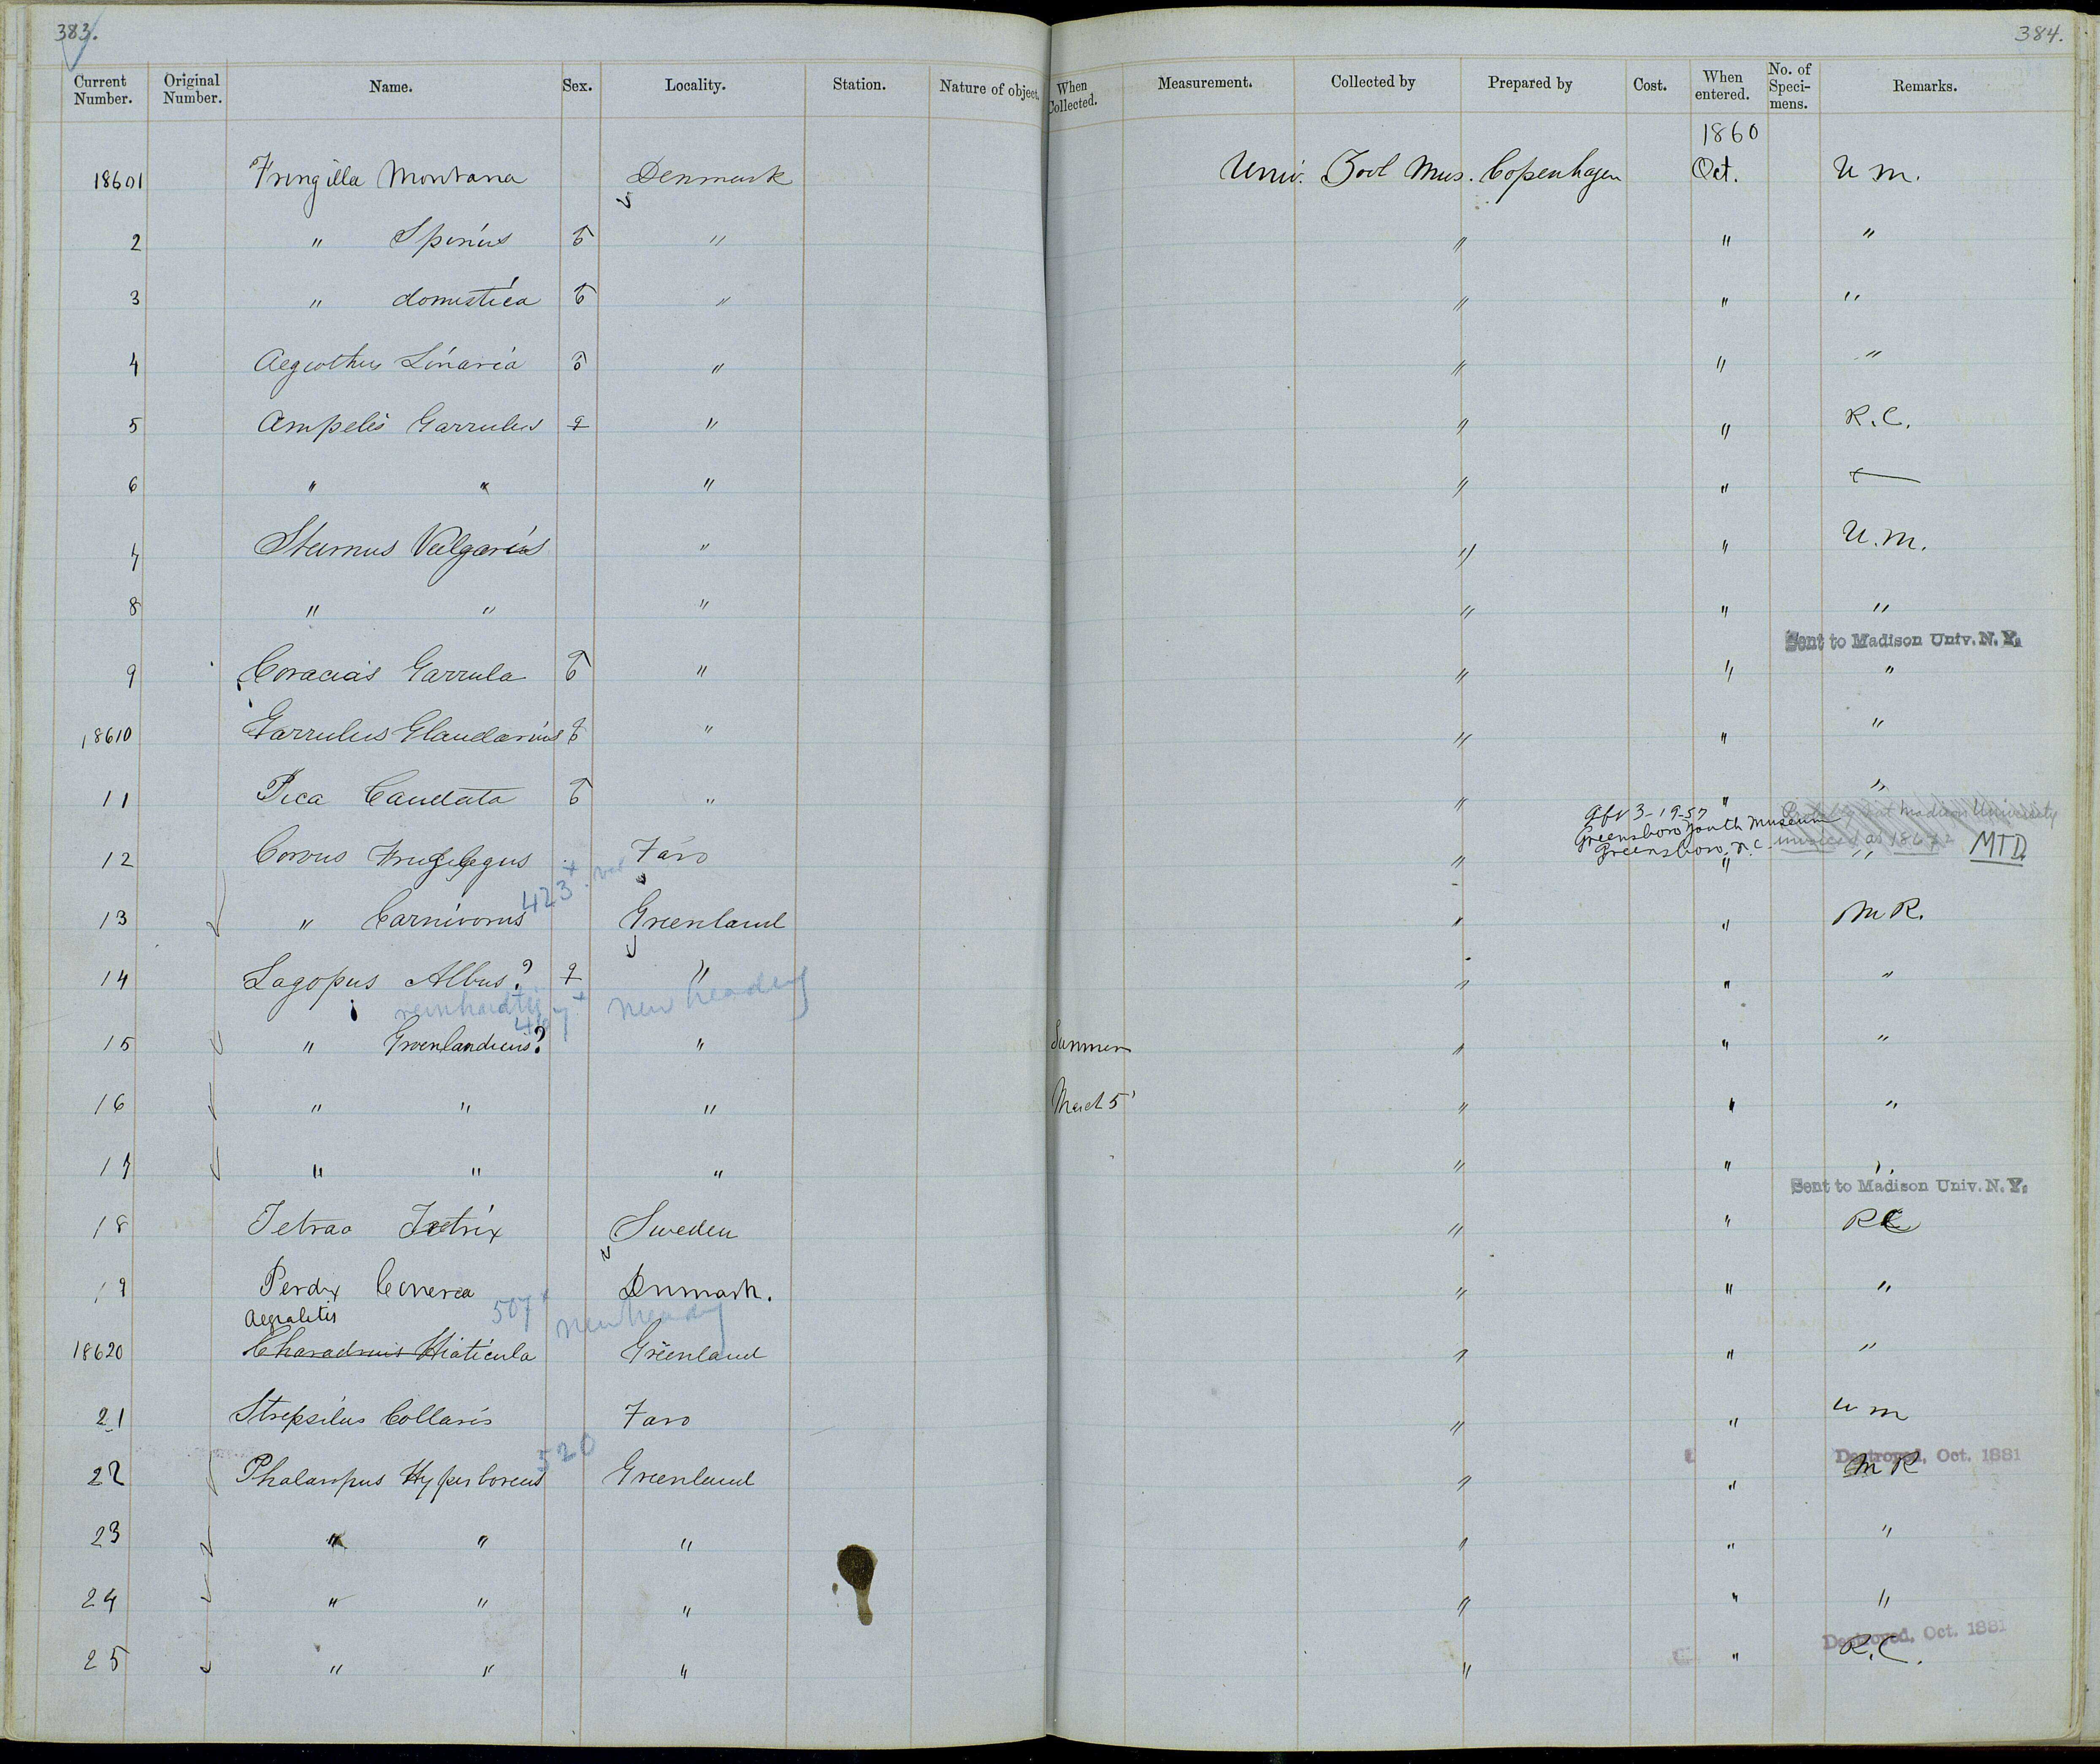 383. 384.
Current Number. Original Number. Name. Sex. Locality. Station. Nature of object. When Collected. Measurement. Collected by Prepared by Cost. When entered. No. of Speci-mens. Remarks.
1860
18601 Fringilla Montana Denmark Univ. Zool Mus. Copenhagen Oct. U M.
2 " Spinus ♂ " " " "
3 " domestica ♂ " " " "
4 Aegiothus Linaria ♂ " " " "
5 Ampelis Garrulus ♀ " " " R.C.
6 " " " " "
7 Sturnus Vulgaris " " " U.M.
8 " " " " " "
Sent to Madison Univ. N. Y.
9 Coracias Garrula ♂ " " " "
18610 Garrulus Glandarius ♂ " " " "
11 Pica Caudata ♂ " " " "
Gft 3-19-57
Greensboro Youth Museum
Greensboro, N.C. MTD
12 Corvus Frugilegus Faro " " "
423 +
13 " Carnivorus Greenland " " M R.
14 Lagopus Albus? ♀ " " " "
reinhardti 467 + new heading
15 " Groenlandicus? " Summer " " "
16 " " " March 5 " " "
17 " " " " " "
Sent to Madison Univ. N. Y.
18 Tetrao Tetrix Sweden " " RC
19 Perdix Cinerea Denmark. " " "
Aegialitis 507 + new heading
18620 Charadrius Hiaticula Greenland " " "
21 Strepsilus Collaris Faro " " U M
520 Destroyed, Oct. 1881
22 Phalaropus Hyperboreus Greenland " " M R
23 " " " " " "
24 " " " " " "
Destroyed, Oct. 1881
25 " " " " " R.C.